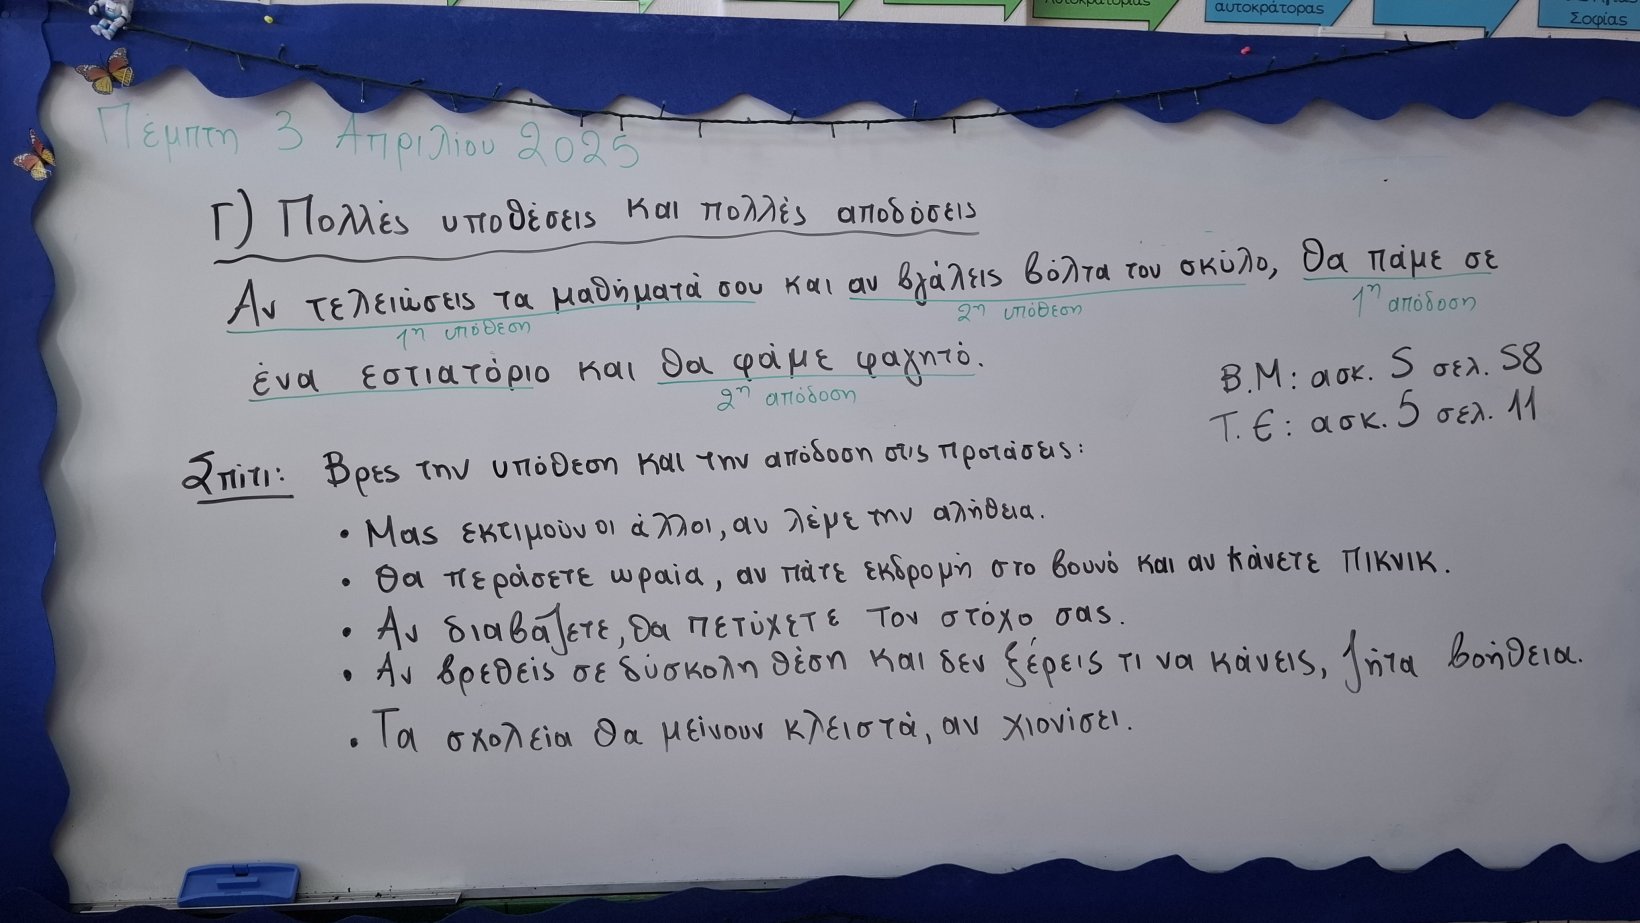 αυτοκράτορας
Σοφίας
Πέμπτη 3 Απριλίου 2025
Γ) Πολλές υποθέσεις και πολλές αποδόσεις
Αν τελειώσεις τα μαθήματά σου και αν βγάλεις βόλτα τον σκύλο, θα πάμε σε
1η υπόθεση 2η υπόθεση 1η απόδοση
ένα εστιατόριο και θα φάμε φαγητό.
2η απόδοση
Β.Μ: ασκ. 5 σελ. 58
Τ.Ε: ασκ. 5 σελ. 11
Σπίτι: Βρες την υπόθεση και την απόδοση στις προτάσεις:
• Μας εκτιμούν οι άλλοι, αν λέμε την αλήθεια.
• Θα περάσετε ωραία, αν πάτε εκδρομή στο βουνό και αν κάνετε πικνικ.
• Αν διαβάζετε, θα πετύχετε τον στόχο σας.
• Αν βρεθείς σε δύσκολη θέση και δεν ξέρεις τι να κάνεις, ζήτα βοήθεια.
• Τα σχολεία θα μείνουν κλειστά, αν χιονίσει.